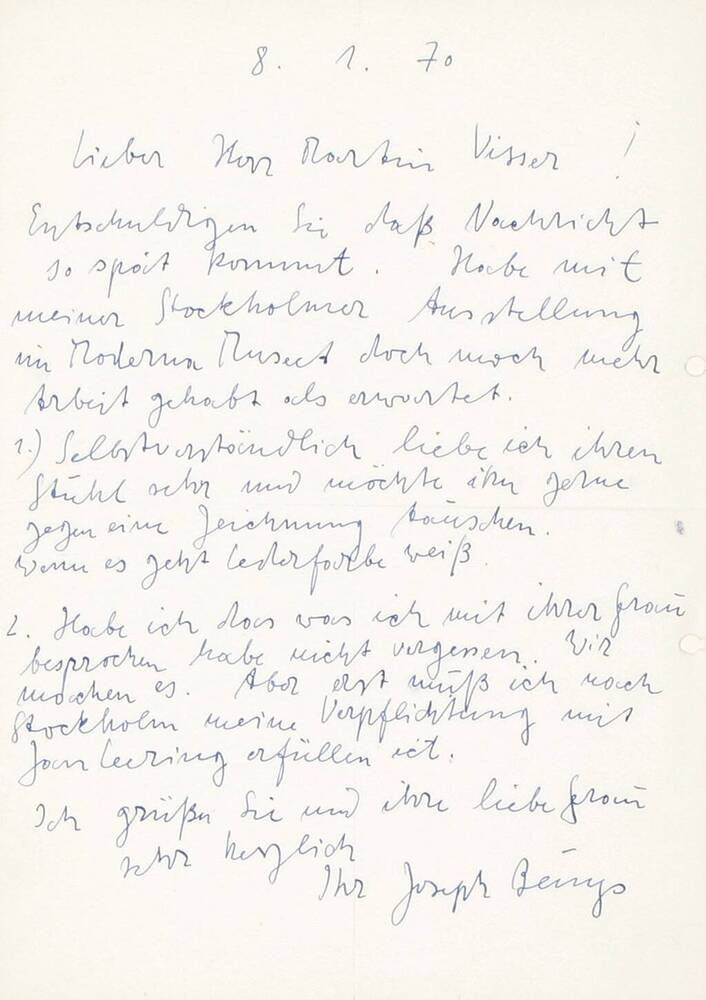 8. 1. 70
Lieber Herr Martin Visser !
Entschuldigen Sie daß Nachricht
so spät kommt. Habe mit
meiner Stockholmer Ausstellung
im Moderna Museet doch noch mehr
Arbeit gehabt als erwartet.
1.) Selbstverständlich liebe ich ihren
Stuhl sehr und möchte ihn gerne
gegen eine Zeichnung tauschen.
wenn es geht Lederfarbe weiß.
2. Habe ich das was ich mit ihrer Frau
besprochen habe nicht vergessen. Wir
machen es. Aber erst muß ich nach
Stockholm meine Verpflichtung mit
Jan Leering erfüllen
Ich grüße Sie und ihre liebe Frau
sehr herzlich
Ihr Joseph Beuys